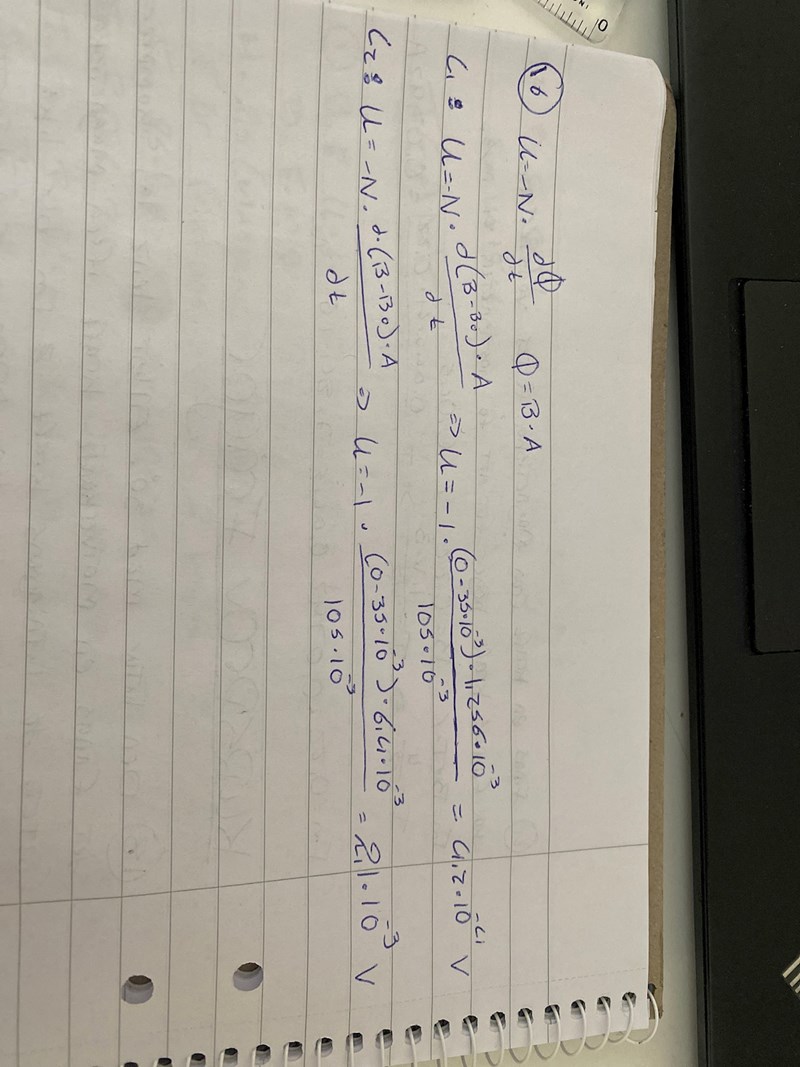 16 U = -N · dΦ/dt Φ = B · A
L₁: U = -N · d(B-B₀) · A/dt => U = -1 · (0-35·10⁻³) · 1,256·10⁻³/105·10⁻³ = 4,2·10⁻⁴ V
L₂: U = -N · d·(B-B₀) · A/dt => U = -1 · (0-35·10⁻³) · 6,4·10⁻³/105·10⁻³ = 2,1·10⁻³ V